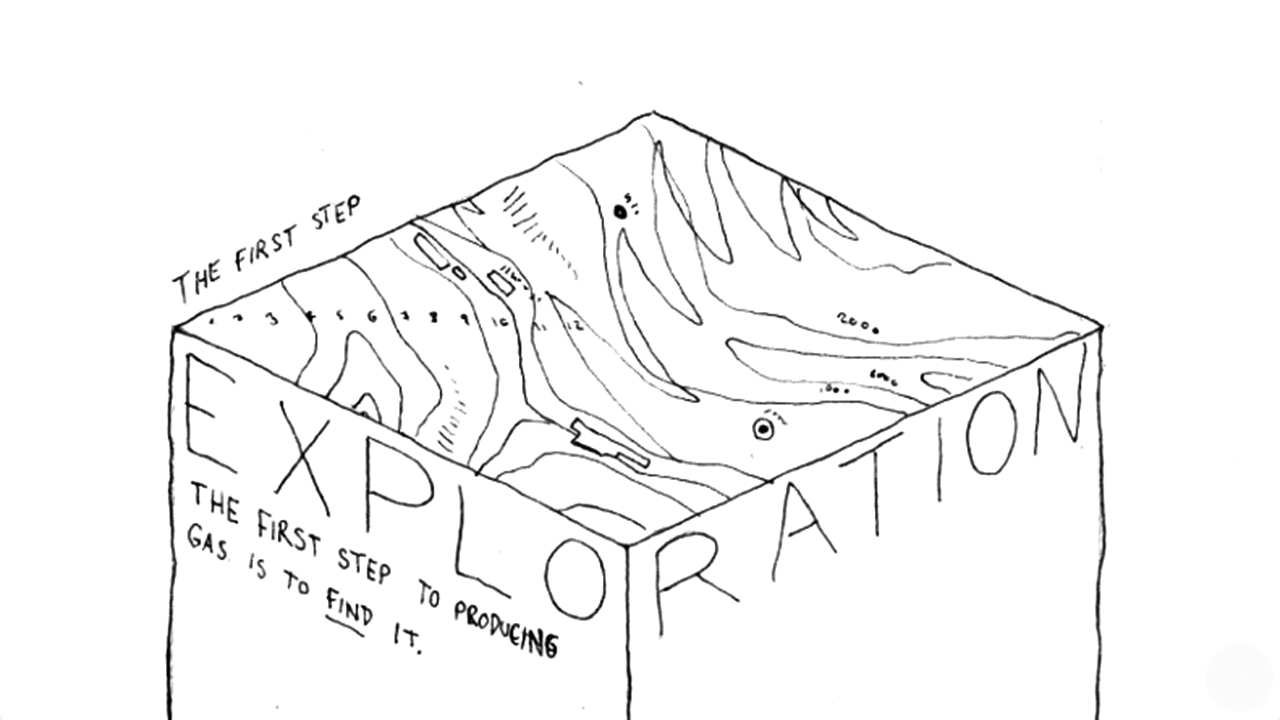 THE FIRST STEP
2 3 4 5 6 7 8 9 10 11 12
2000
EXPLORATION
THE FIRST STEP TO PRODUCING
GAS IS TO FIND IT.